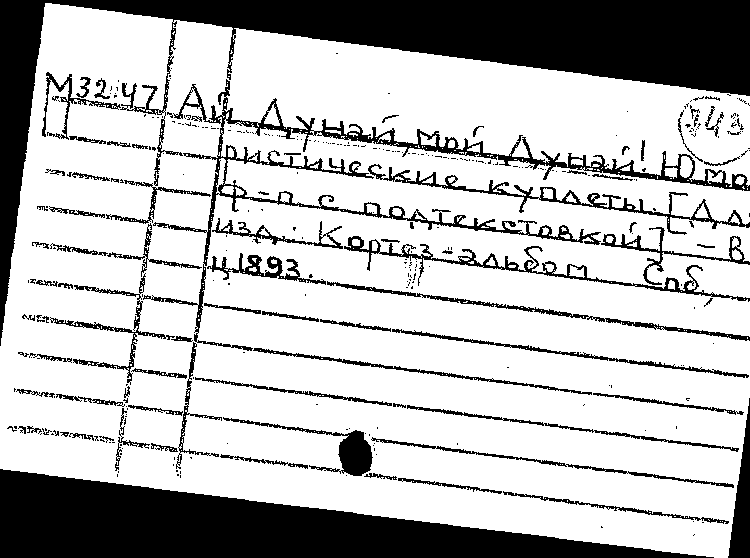 М32:47 Ай Дунай, мой Дунай! Юмо
ристические куплеты. [Для
ф-п с подтекстовкой] - В
изд: Кортез-альбом Спб,
ц. 1893.